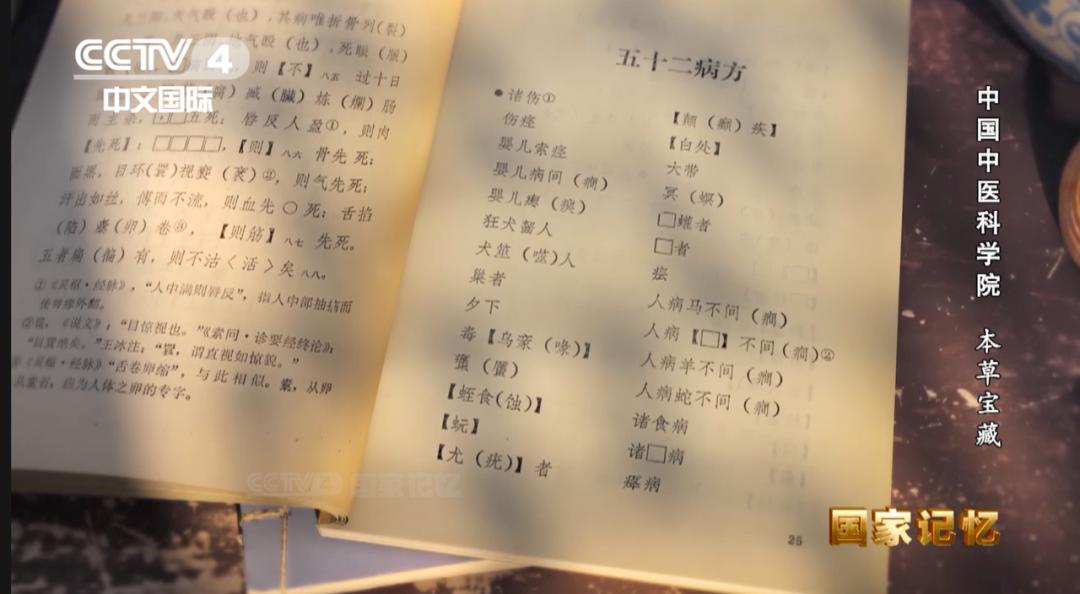 CCTV 4
中文国际
气殹（也），其病唯折骨列（裂）
气殹（也），死脈（脈）
，则【不】八五 过十日
臧（臟）炼（爛）肠
五死：唇反人盈①，则肉
【先死】；□□□□，【则】八六 骨先死；
面黑，目环（睘）视褎（衺）②，则气先死；
汗出如丝，傅而不流，则血先〇死；舌掐
（陷）橐（卵）卷③，【则筋】八七 先死。
五者扁（徧）有，则不沽〈活〉矣八八。
①《灵枢·经脉》，“人中满则唇反”，指人中部抽搐而
使唇缘外翻。
《说文》：“目惊视也。”《素问·诊要经终论》：
“目睘绝系。”王冰注：“睘，谓直视如惊貌。”
《灵枢·经脉》“舌卷卵缩”，与此相似。橐，从卵
橐省，应为人体之卵的专字。
五十二病方
●诸伤①
伤痉
婴儿索痉
婴儿病间（癎）
婴儿瘛（瘈）
狂犬齧人
犬筮（噬）人
巢者
夕下
毒【乌豙（喙）】
虿（虿）
【蛭食（蚀）】
【蚖】
【尤（疣）】者
【颠（癫）疾】
【白处】
大带
冥（螟）
□蠸者
□者
疣
人病马不间（癎）
人病【□】不间（癎）②
人病羊不间（癎）
人病蛇不间（癎）
诸食病
诸□病
瘃病
25
中国中医科学院 本草宝藏
CCTV 4 国家记忆
国家记忆